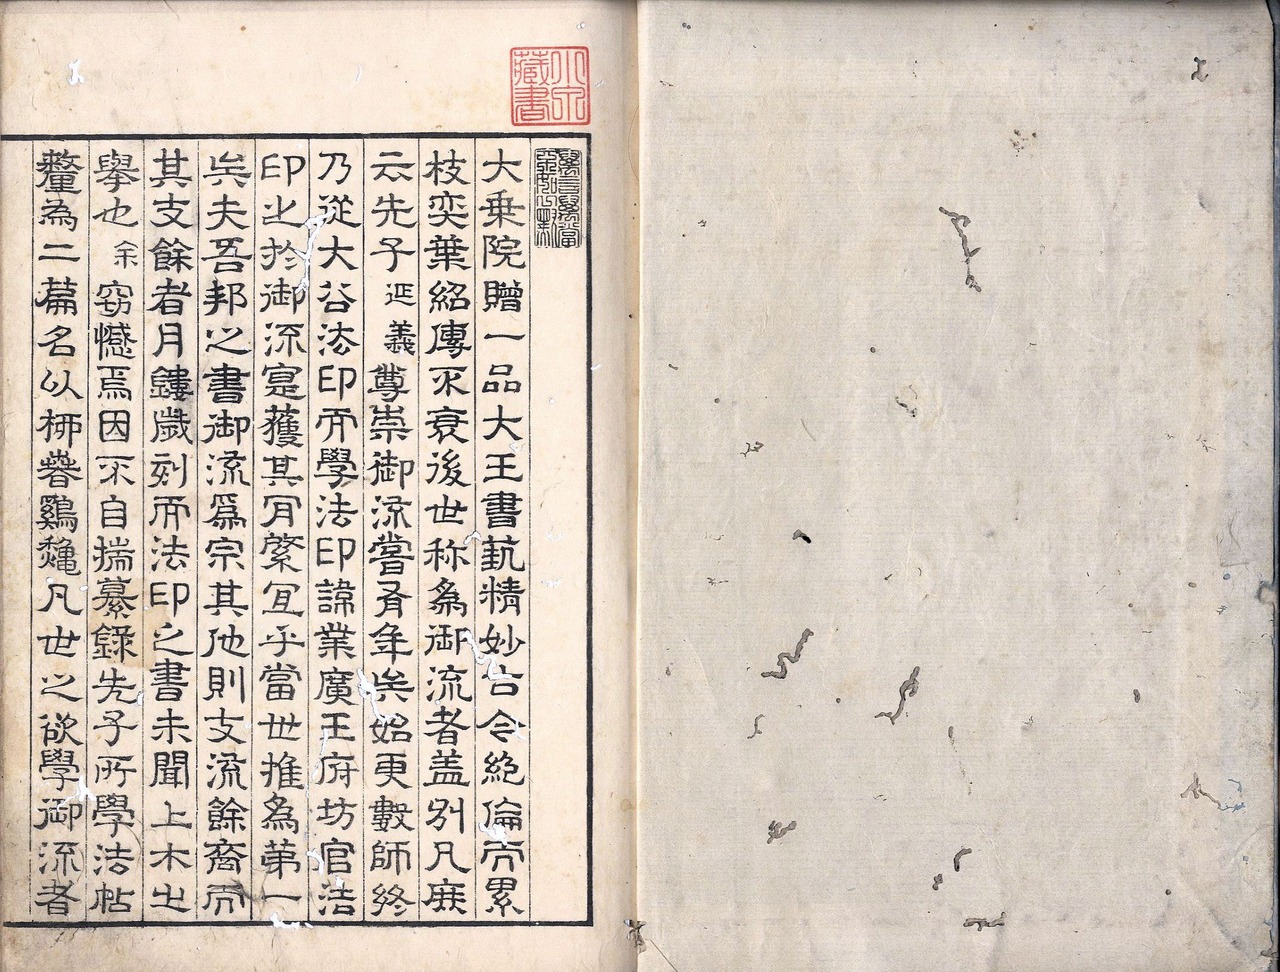 小泉藏書
萬言萬當
不如一默
大乗院贈一品大王書藝精妙古今絶倫而累
枝奕葉紹傳不衰後世称為御流者盖別凡庶
云先子延義尊崇御流嘗有年矣始更數師終
乃從大谷法印而學法印諱業廣王府坊官法
印之於御流寔獲其骨綮宜乎當世推為第一
矣夫吾邦之書御流爲宗其他則支流餘裔而
其支餘者月鏤歳刻而法印之書未聞上木之
擧也余窃憾焉因不自揣纂錄先子所學法帖
釐為二篇名以栁營鷄 凡世之欲學御流者